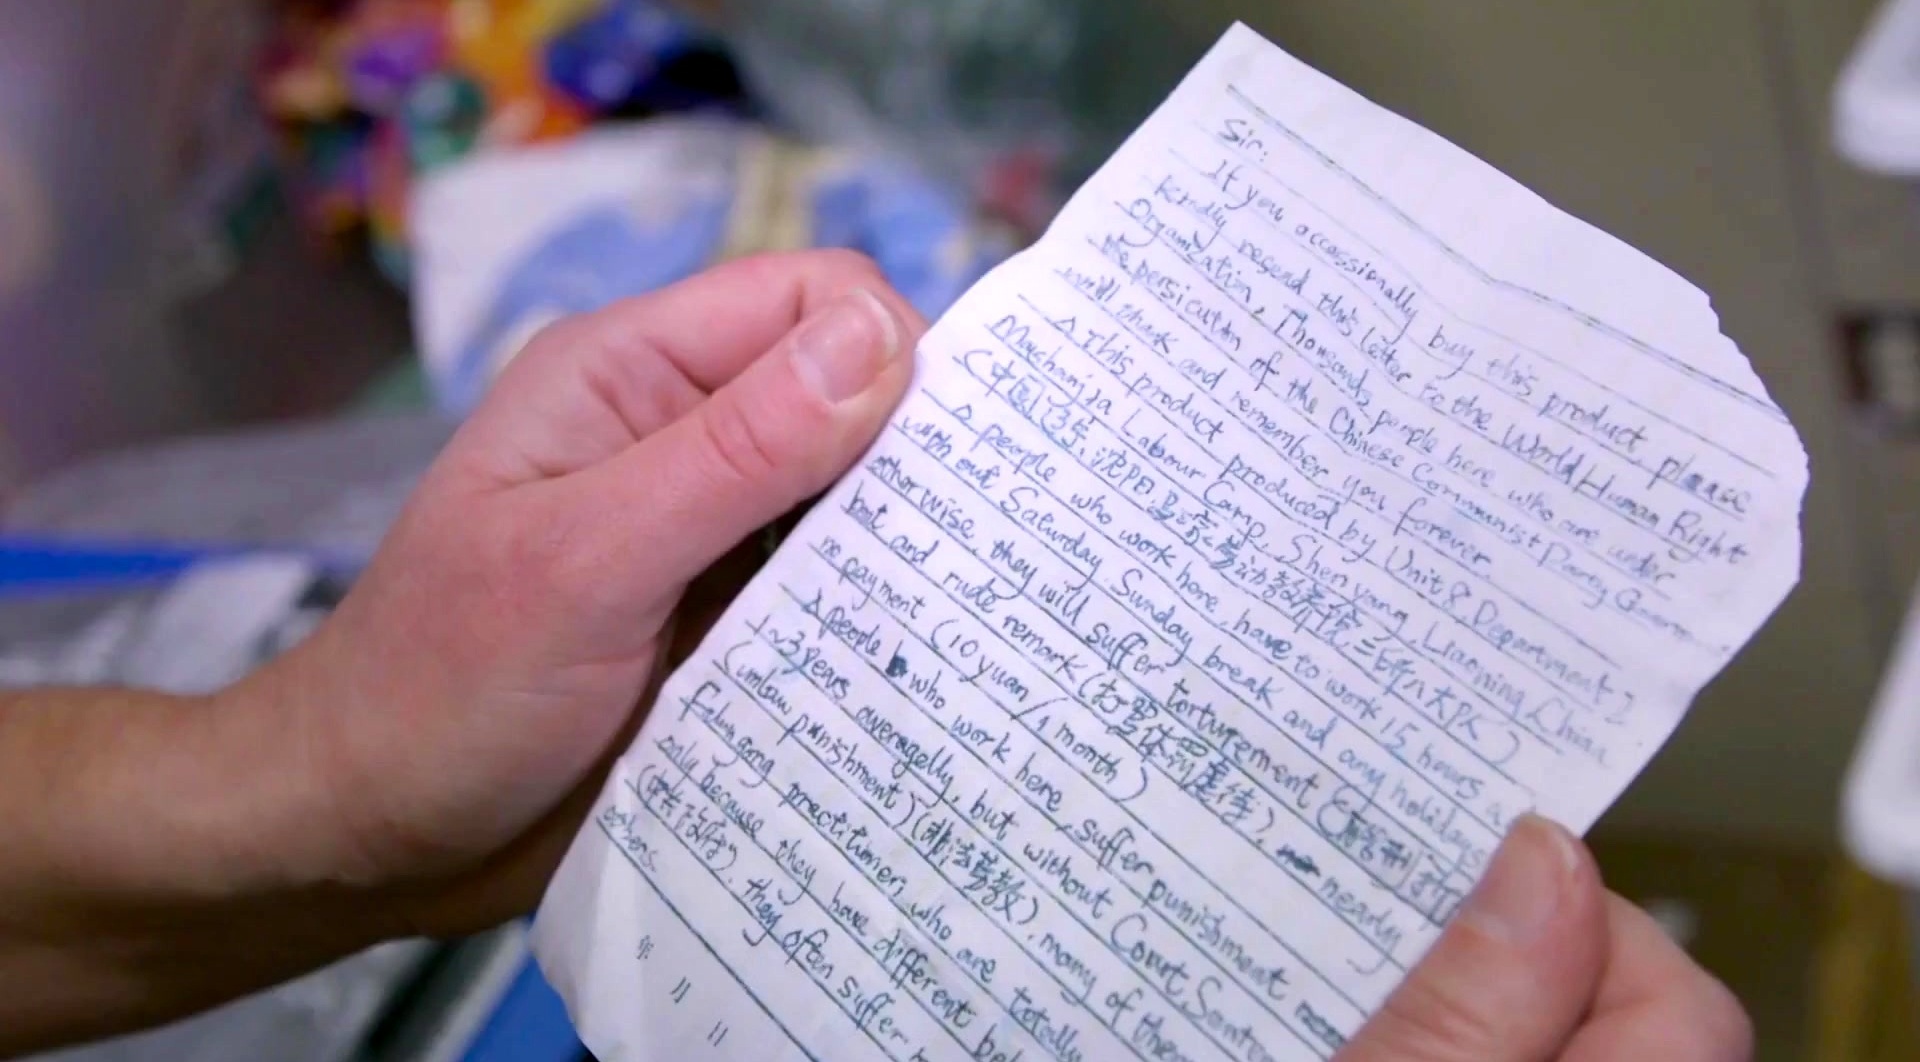 Sir:
If you occassionally buy this product please
kindly resend this letter to the World Human Right
Organization, Thousands people here who are under
the persicution of the Chinese Communist Party Govern
will thank and remember you forever.
△ This product produced by Unit 8, Department 2
Mashanjia Labour Camp, Shen yang, Liaoning China
(中国辽宁,沈阳,马三家劳动教养院二所八大队)
△ People who work here, have to work 15 hours a
with out Saturday, Sunday break and any holidays
otherwise, they will suffer torturement
beat and rude remark (打骂体罚虐待), nearly
no payment (10 yuan / 1 month)
△ People who work here, suffer punishment
1~3 years averagelly, but without Court Sente
(unlaw punishment) (非法劳教), many of them
Falun gong practitioner, who are totally
only because they have different bel
they often suffer
others.